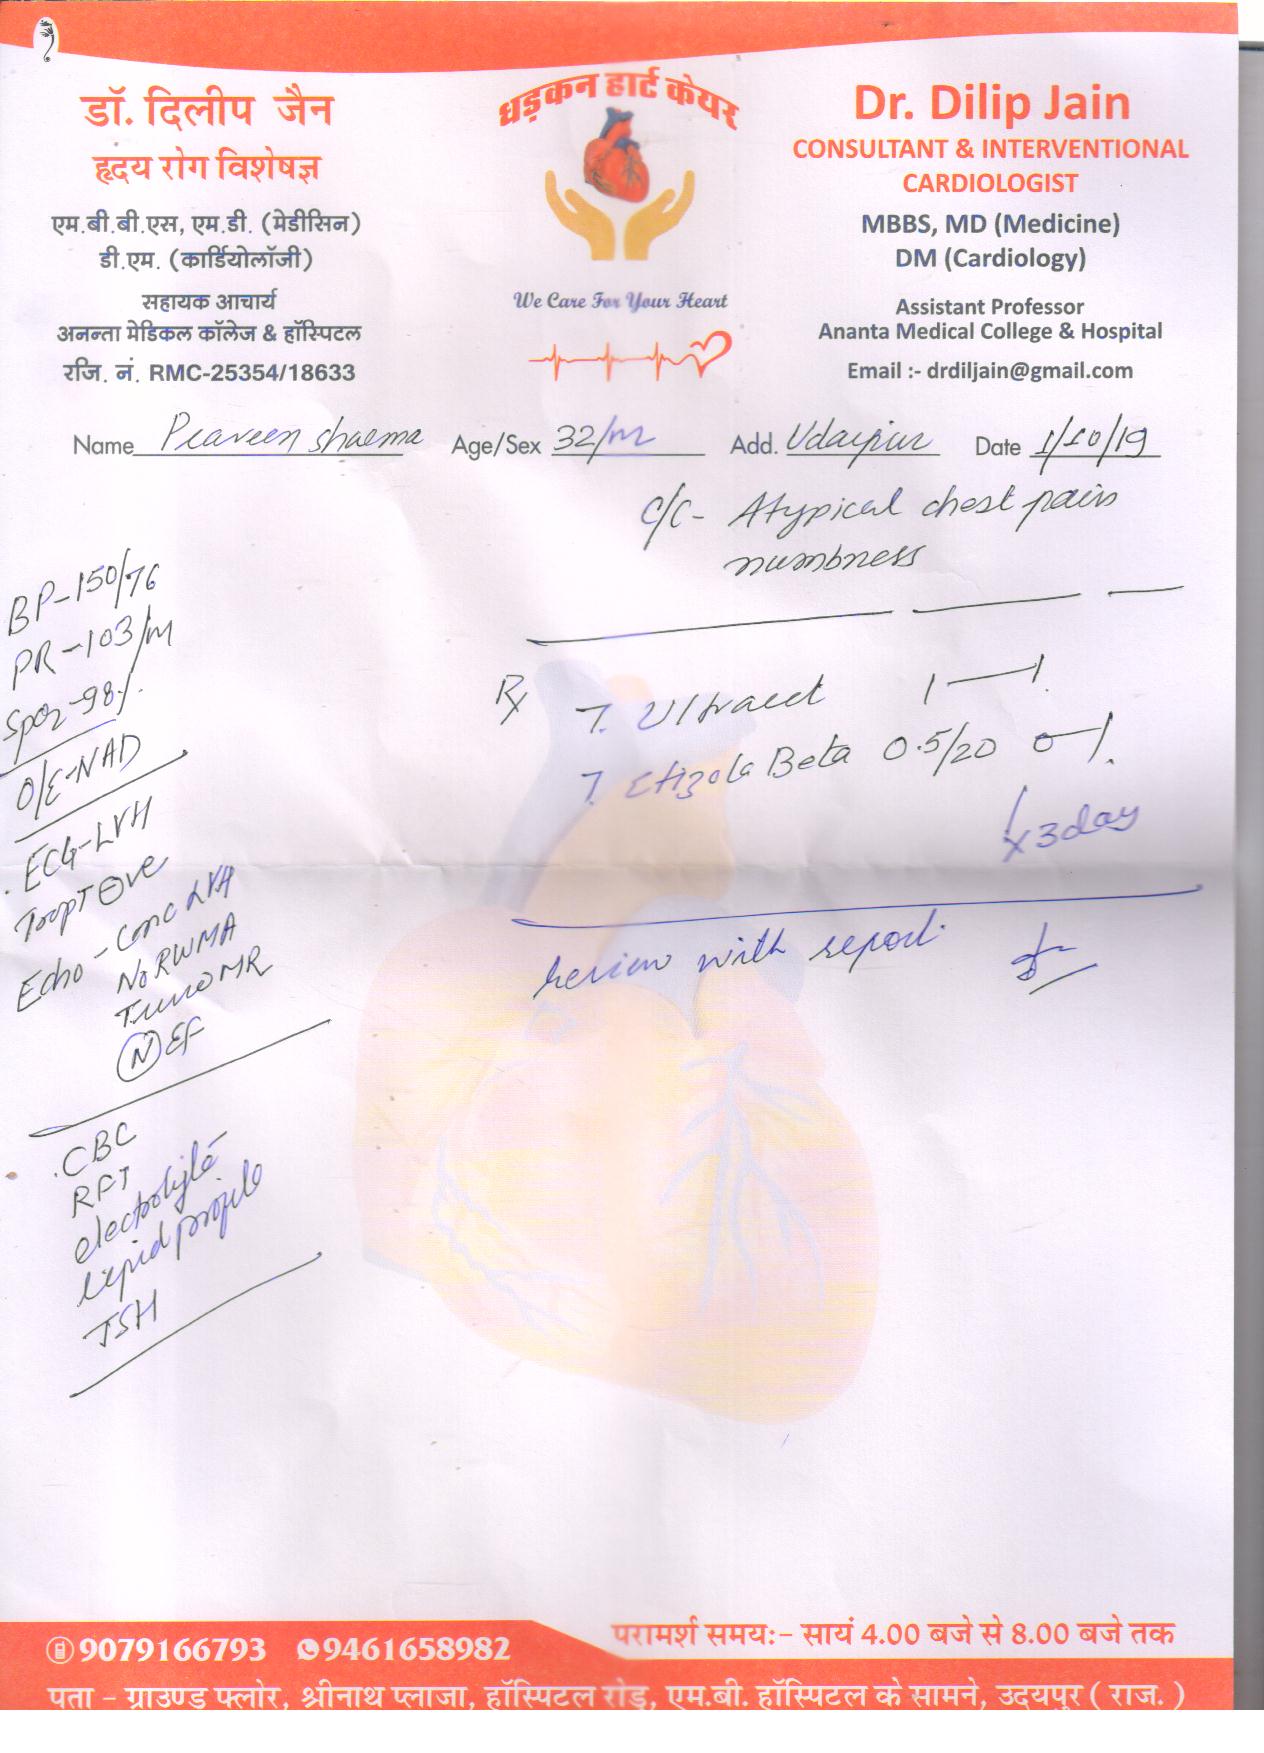 डॉ. दिलीप जैन
हृदय रोग विशेषज्ञ
एम.बी.बी.एस, एम.डी. (मेडीसिन)
डी.एम. (कार्डियोलॉजी)
सहायक आचार्य
अनन्ता मेडिकल कॉलेज & हॉस्पिटल
रजि. नं. RMC-25354/18633
धड़कन हार्ट केयर
We Care For Your Heart
Dr. Dilip Jain
CONSULTANT & INTERVENTIONAL
CARDIOLOGIST
MBBS, MD (Medicine)
DM (Cardiology)
Assistant Professor
Ananta Medical College & Hospital
Email :- drdiljain@gmail.com
Name Praveen sharma Age/Sex 32/m Add. Udaipur Date 1/10/19
C/C- Atypical chest pain
numbness
BP-150/76
PR-103/m
Spo2-98%.
O/E-NAD
ECG-LVH
TropT ⊖ve
Echo - Conc LVH
No RWMA
MR
Ⓝ EF
CBC
RFT
electrolyte
lipid profile
TSH
Rx
T. Ultracet 1—1
T. Etizola Beta 0.5/20 0—1
x 3day
review with report.
9079166793 9461658982
परामर्श समय:- सायं 4.00 बजे से 8.00 बजे तक
पता - ग्राउण्ड फ्लोर, श्रीनाथ प्लाजा, हॉस्पिटल रोड़, एम.बी. हॉस्पिटल के सामने, उदयपुर ( राज. )